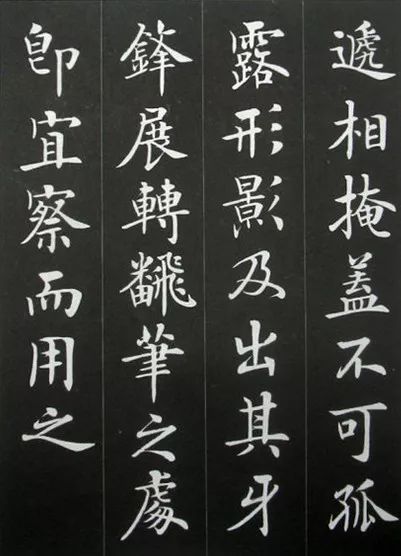 遞相掩蓋不可孤
露形影及出其牙
鋒展轉飜筆之處
即宜察而用之